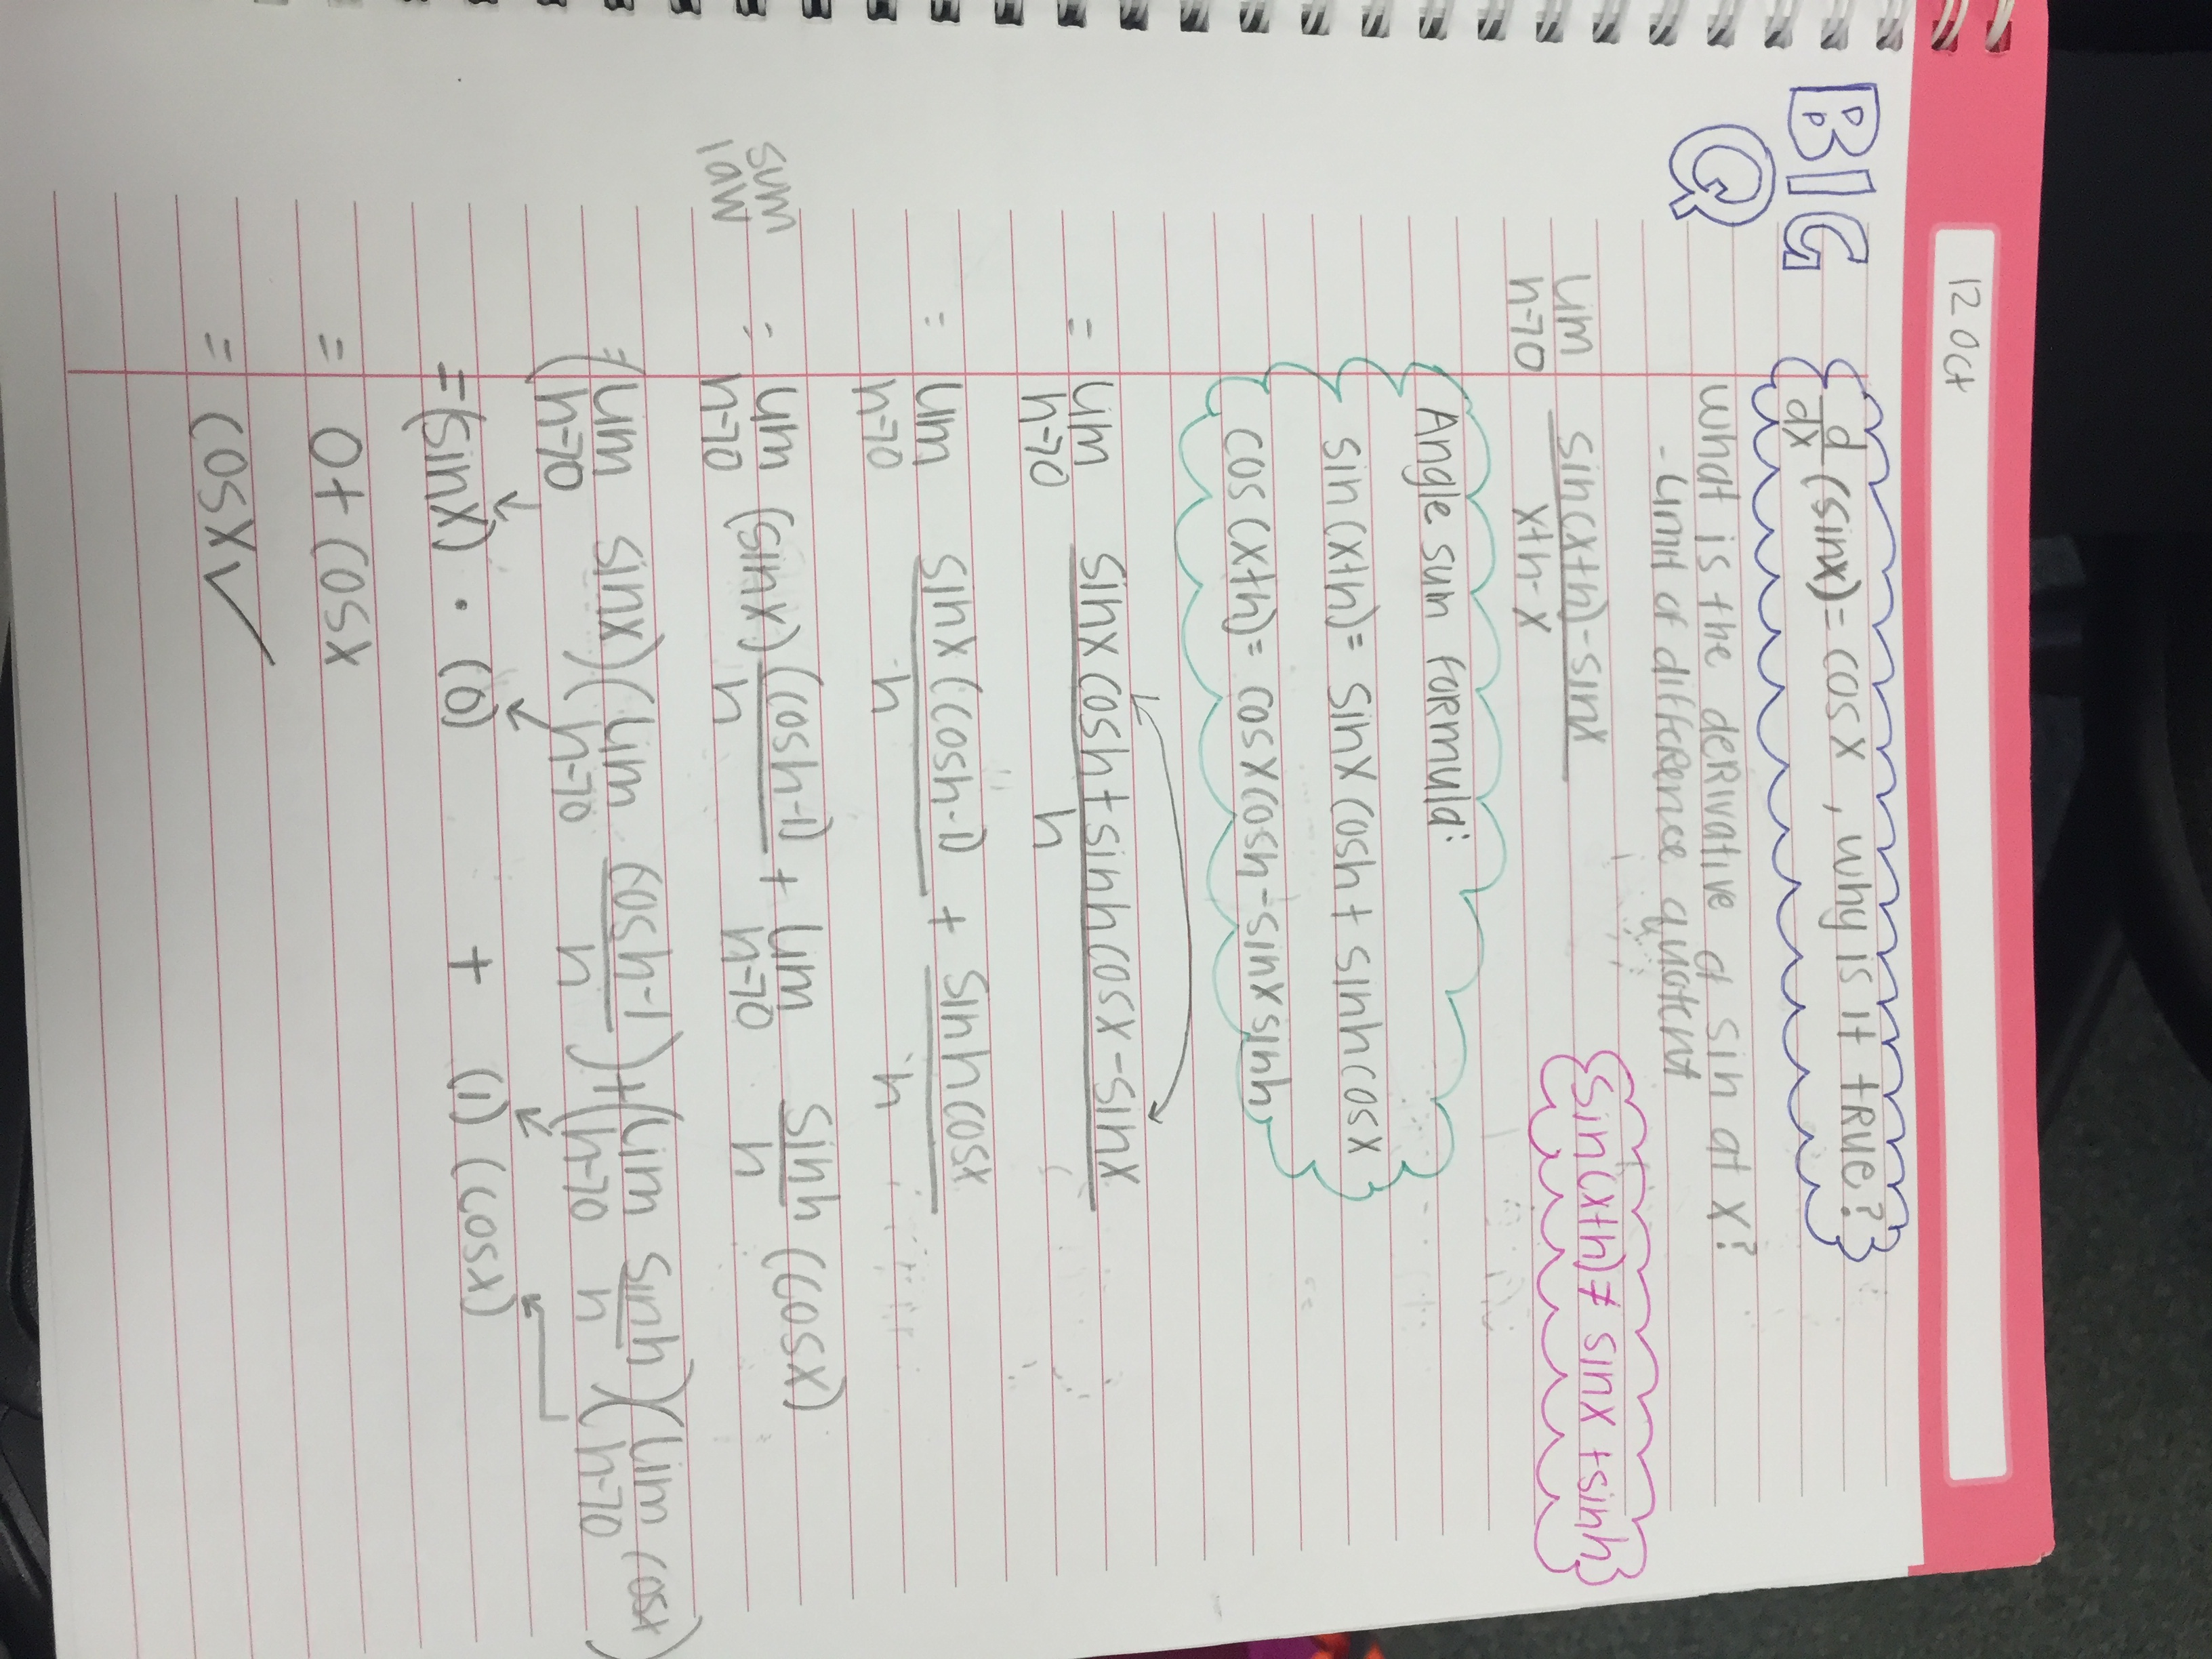 12 Oct
BIG
Q
d/dx (sinx) = cosx, why is it tRUE?
what is the deRivative of sin at x?
- Limit of diffeRence quotient
lim h→0 sin(x+h)-sinx / x+h-x
sin(x+h) ≠ sinx + sinh
Angle sum formula:
sin(x+h) = sinx cosh + sinh cosx
cos(x+h) = cosx cosh - sinx sinh
= lim h→0 sinx cosh + sinh cosx - sinx / h
= lim h→0 sinx(cosh-1) / h + sinh cosx / h
sum law
= lim h→0 (sinx) (cosh-1) / h + lim h→0 sinh / h (cosx)
= (lim h→0 sinx)(lim h→0 cosh-1 / h) + (lim h→0 sinh / h)(lim h→0 cosx)
= (sinx) · (0) + (1) (cosx)
= 0 + cosx
= cosx ✓